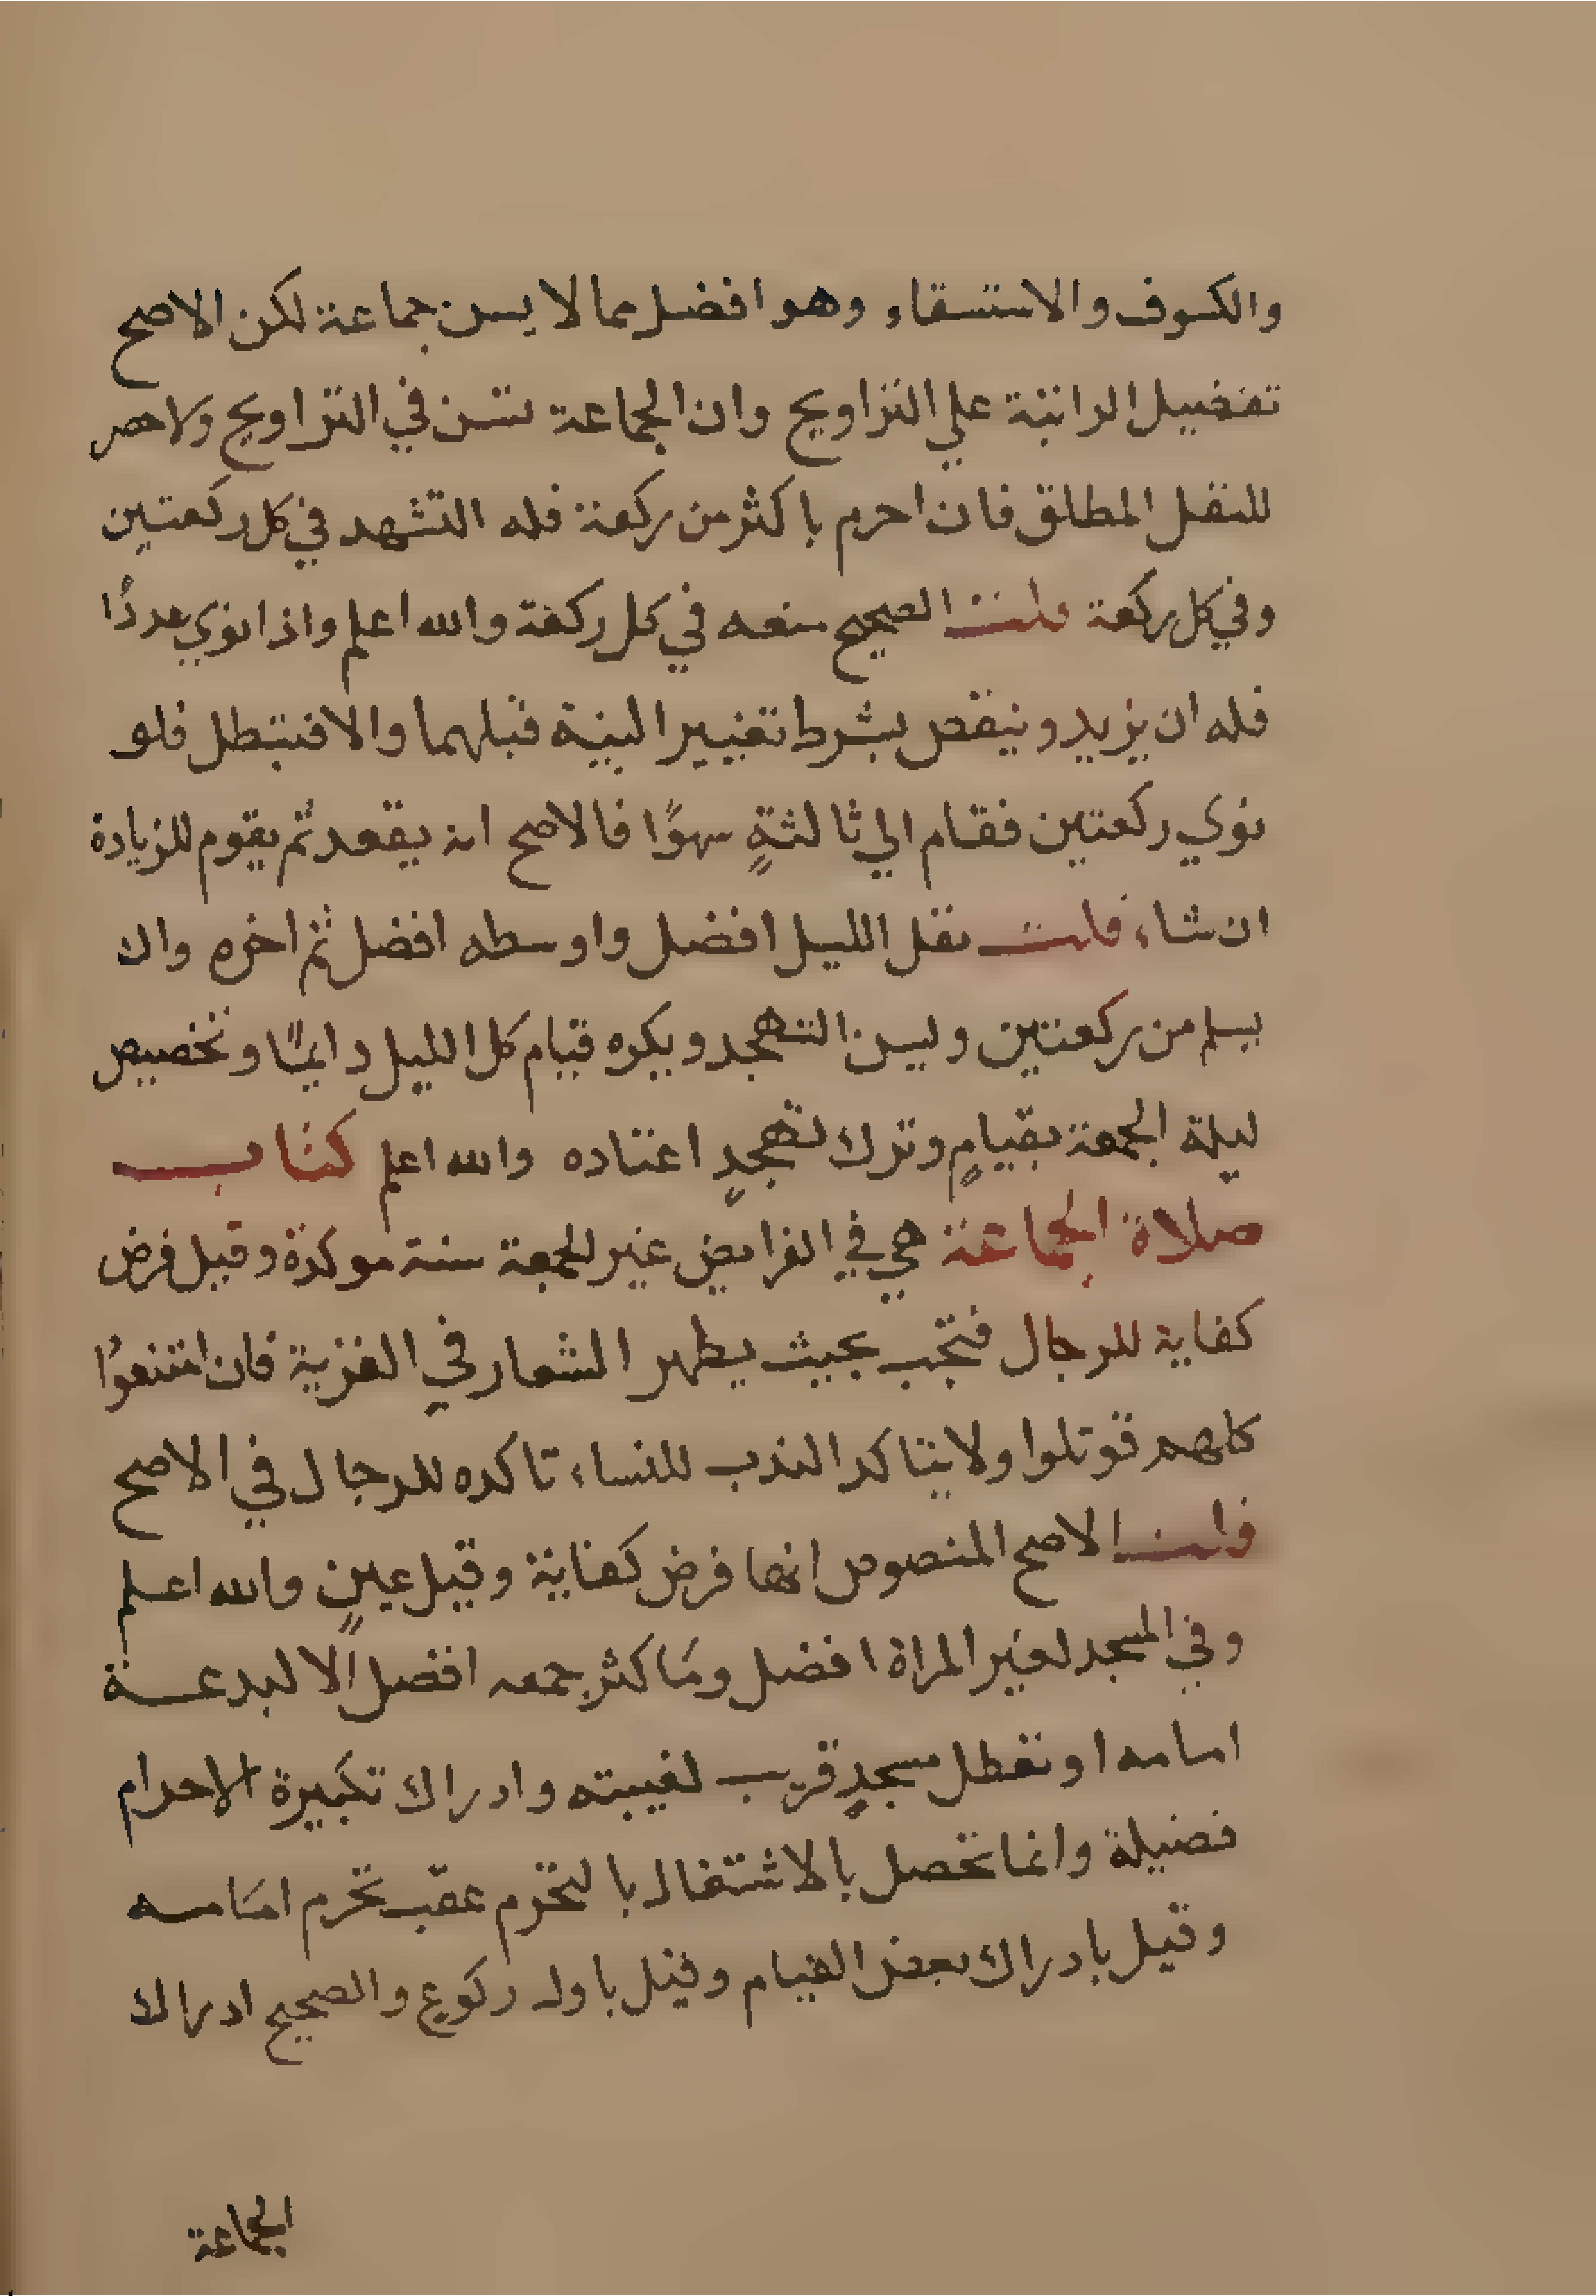 والكسوف والاستسقاء وهو افضل مما لا يسن جماعة لكن الاصح
تفضيل الراتبة علي التراويح وان الجماعة تسن في التراويح ولا حصر
للنفل المطلق فان احرم باكثر من ركعة فله التشهد في كل ركعتين
وفي كل ركعة قلت الصحيح منعه في كل ركعة والله اعلم واذا نوي عددًا
فله ان يزيد وينقص بشرط تغيير النية قبلهما والا فتبطل فلو
نوي ركعتين فقام الي ثالثةٍ سهوًا فالاصح انه يقعد ثم يقوم للزيادة
ان شاء قلت نفل الليل افضل واوسطه افضل ثم اخره وان
يسلم من ركعتين ويسن التهجد ويكره قيام كل الليل دايمًا وتخصيص
ليلة الجمعة بقيامٍ وترك تهجدٍ اعتاده والله اعلم كتاب
صلاة الجماعة هي في الفرايض غير الجمعة سنة موكدة وقيل فرض
كفاية للرجال فتجب بحيث يظهر الشعار في القرية فان امتنعوا
كلهم قوتلوا ولا يتاكد الندب للنساء تاكده للرجال في الاصح
قلت الاصح المنصوص انها فرض كفاية وقيل عينٍ والله اعلم
وفي المسجد لغير المراة افضل وما كثر جمعه افضل الا لبدعة
امامه او تعطل مسجدٍ قريب لغيبته وادراك تكبيرة الاحرام
فضيلة وانما تحصل بالاشتغال بالتحرم عقب تحرم امامه
وقيل بادراك بعض القيام وقيل باول ركوع والصحيح ادراك
الجماعة